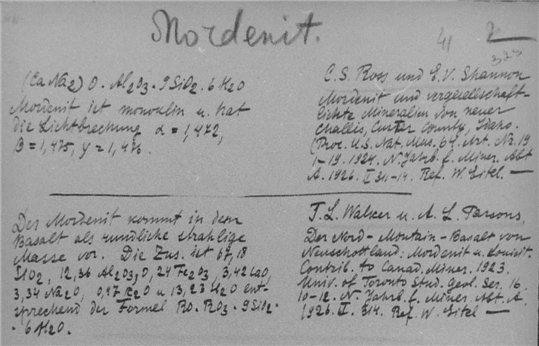 Mordenit.
41 2
323
(Ca Na2) O · Al2O3 · 9 SiO2 · 6 H2O
Mordenit ist monoklin u. hat
die Lichtbrechung α = 1,472,
β = 1,475, γ = 1,476.
C. S. Ross und E. V. Shannon
Mordenit und vergesellschaft-
lichte Mineralien von neuer
Challis, Custer County, Idaho.
(Proc. U.S. Nat. Mus. 64. Art. Nr. 19
1–19. 1924. N. Jahrb. f. Miner. Abt
A. 1926. I 31-14. Ref. W. Eitel —
Der Mordenit kommt in dem
Basalt als rundliche strahlige
Masse vor. Die Zus. ist 67,18
SiO2, 12,36 Al2O3, 0,24 Fe2O3, 3,42 CaO,
3,34 Na2O, 0,47 K2O u 13,23 H2O ent-
sprechend der Formel RO · R2O3 · 9 SiO2 ·
· 6 H2O.
T. L. Walker u. A. L. Parsons,
Der Nord-Mountain-Basalt von
Neuschottland: Mordenit u. Louisit.
Contrib. to Canad. Miner. 1923.
Univ. of Toronto Stud. Geol. Ser. 16.
10–12. N. Jahrb. f. Miner. Abt. A.
1926. I. 314. Ref. W. Eitel —